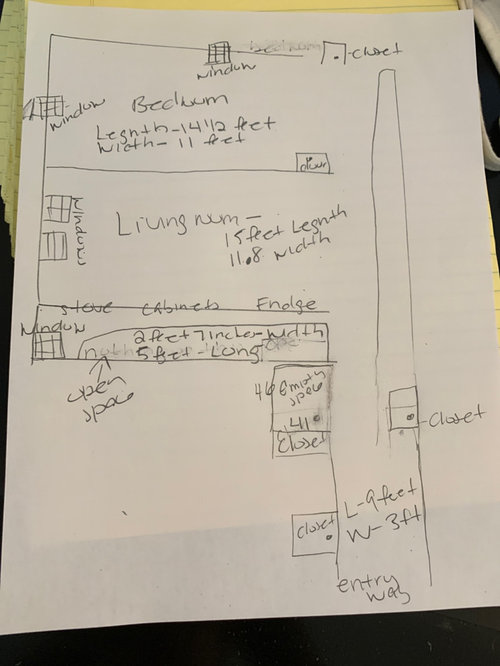 bedroom
closet
window
window
Bedrum
Legnth-14 1/2 feet
width- 11 feet
door
Windows
Livingrum-
15 feet Legnth
11.8 width
stove cabinets Fridge
Window
2 feet 7 inches-width
5 feet-Long
open
space
46 empty
space
41
Closet
Closet
closet
L-9 feet
W-3ft
entry
way